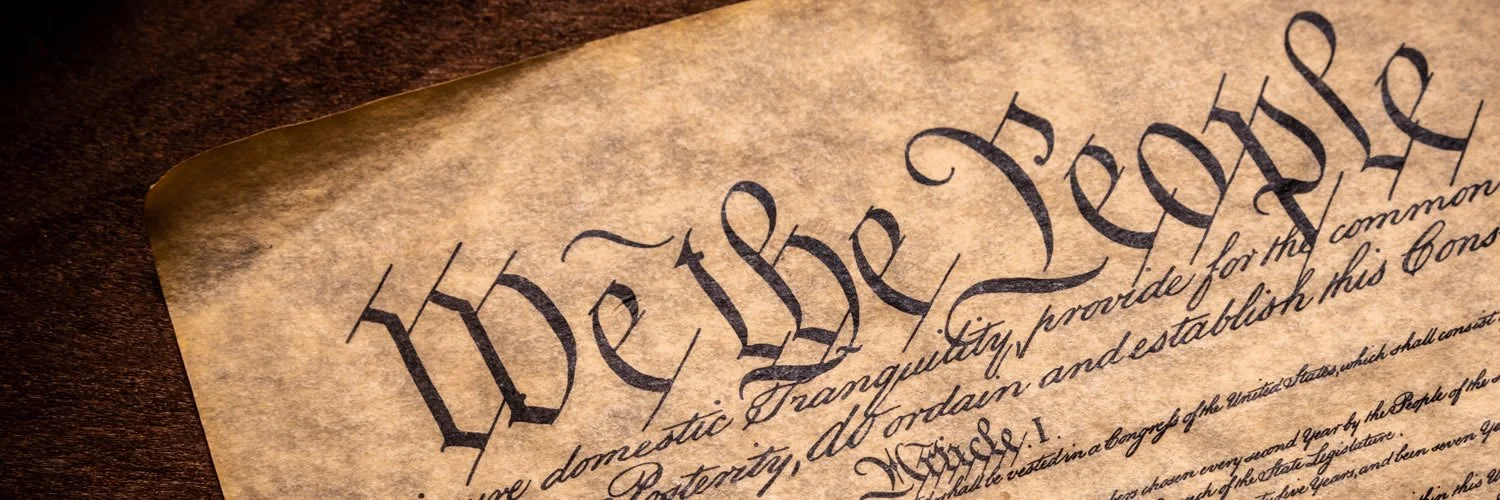 We the People
domestic Tranquility, provide for the common
Posterity, do ordain and establish this
Article. I.
shall be vested in a Congress of the United States, which shall consist
chosen every second Year by the People of the
of the State Legislature.
Years, and been seven
in this